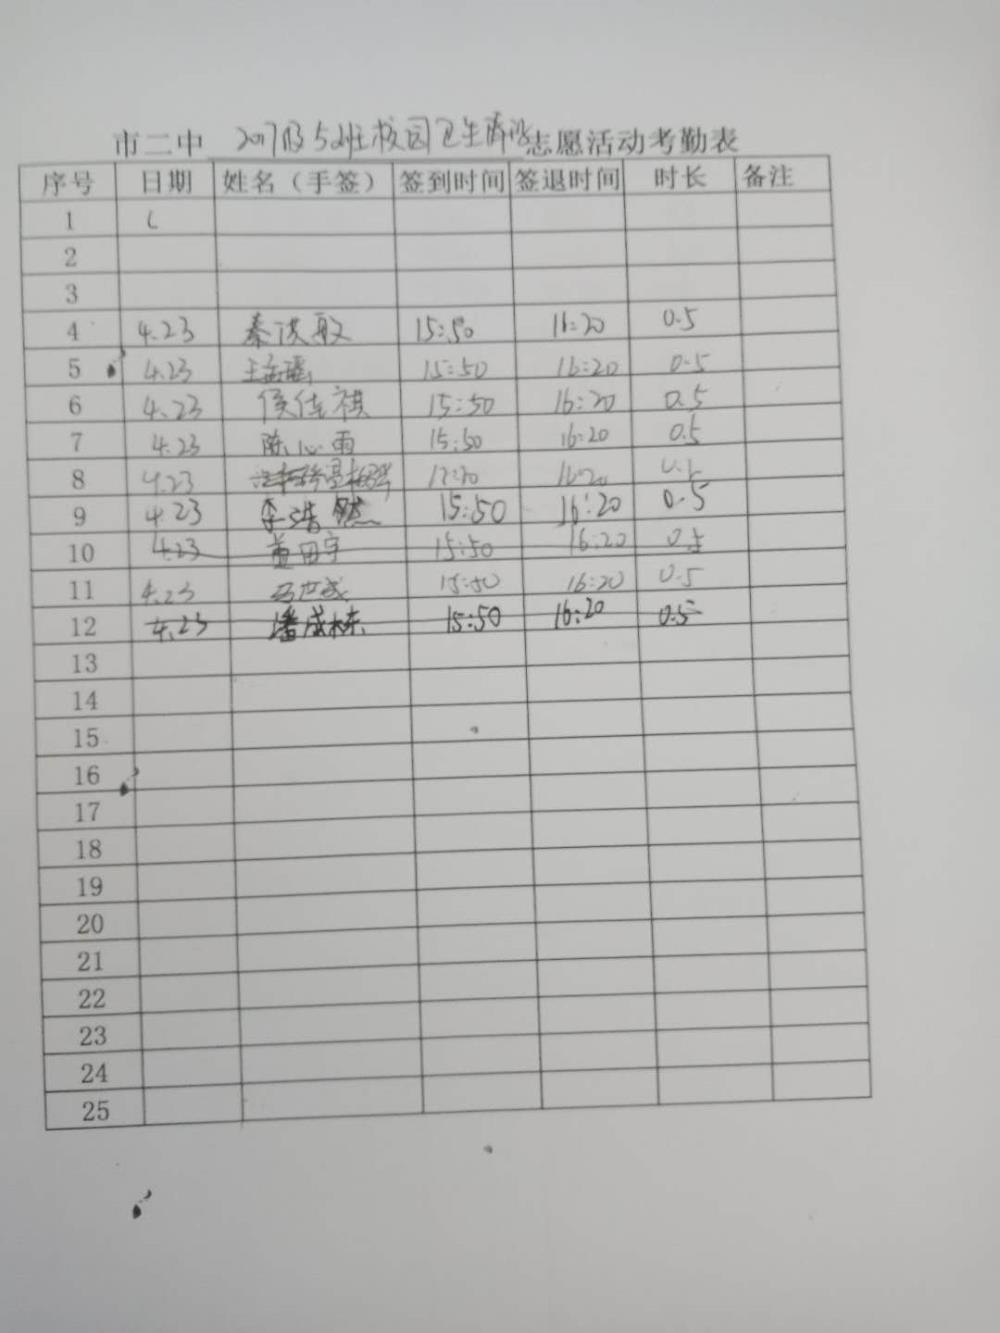 市二中 2017级5班校园卫生清洁志愿活动考勤表
序号 日期 姓名（手签） 签到时间 签退时间 时长 备注
1
2
3
4 4.23 秦洪敏 15:50 16:20 0.5
5 4.23 王孟瑶 15:50 16:20 0.5
6 4.23 侯佳祺 15:50 16:20 0.5
7 4.23 陈心雨 15:50 16:20 0.5
8 4.23 16:20 0.5
9 4.23 李浩然 15:50 16:20 0.5
10 4.23 董田宇 15:50 16:20 0.5
11 4.23 15:50 16:20 0.5
12 4.23 潘成栋 15:50 16:20 0.5
13
14
15
16
17
18
19
20
21
22
23
24
25